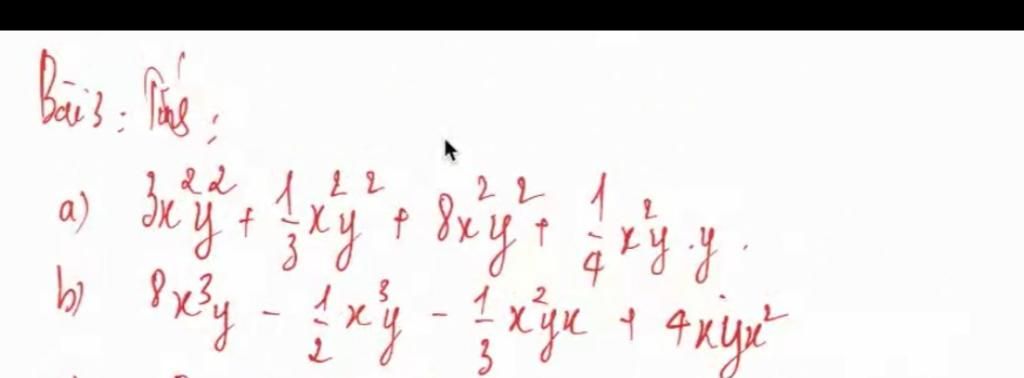 Bài 3: Tính:
a) 3x²y² + 1/3 x²y² + 8x²y² + 1/4 x²y.y.
b) 8x³y - 1/2 x³y - 1/3 x²yx + 4xyx²